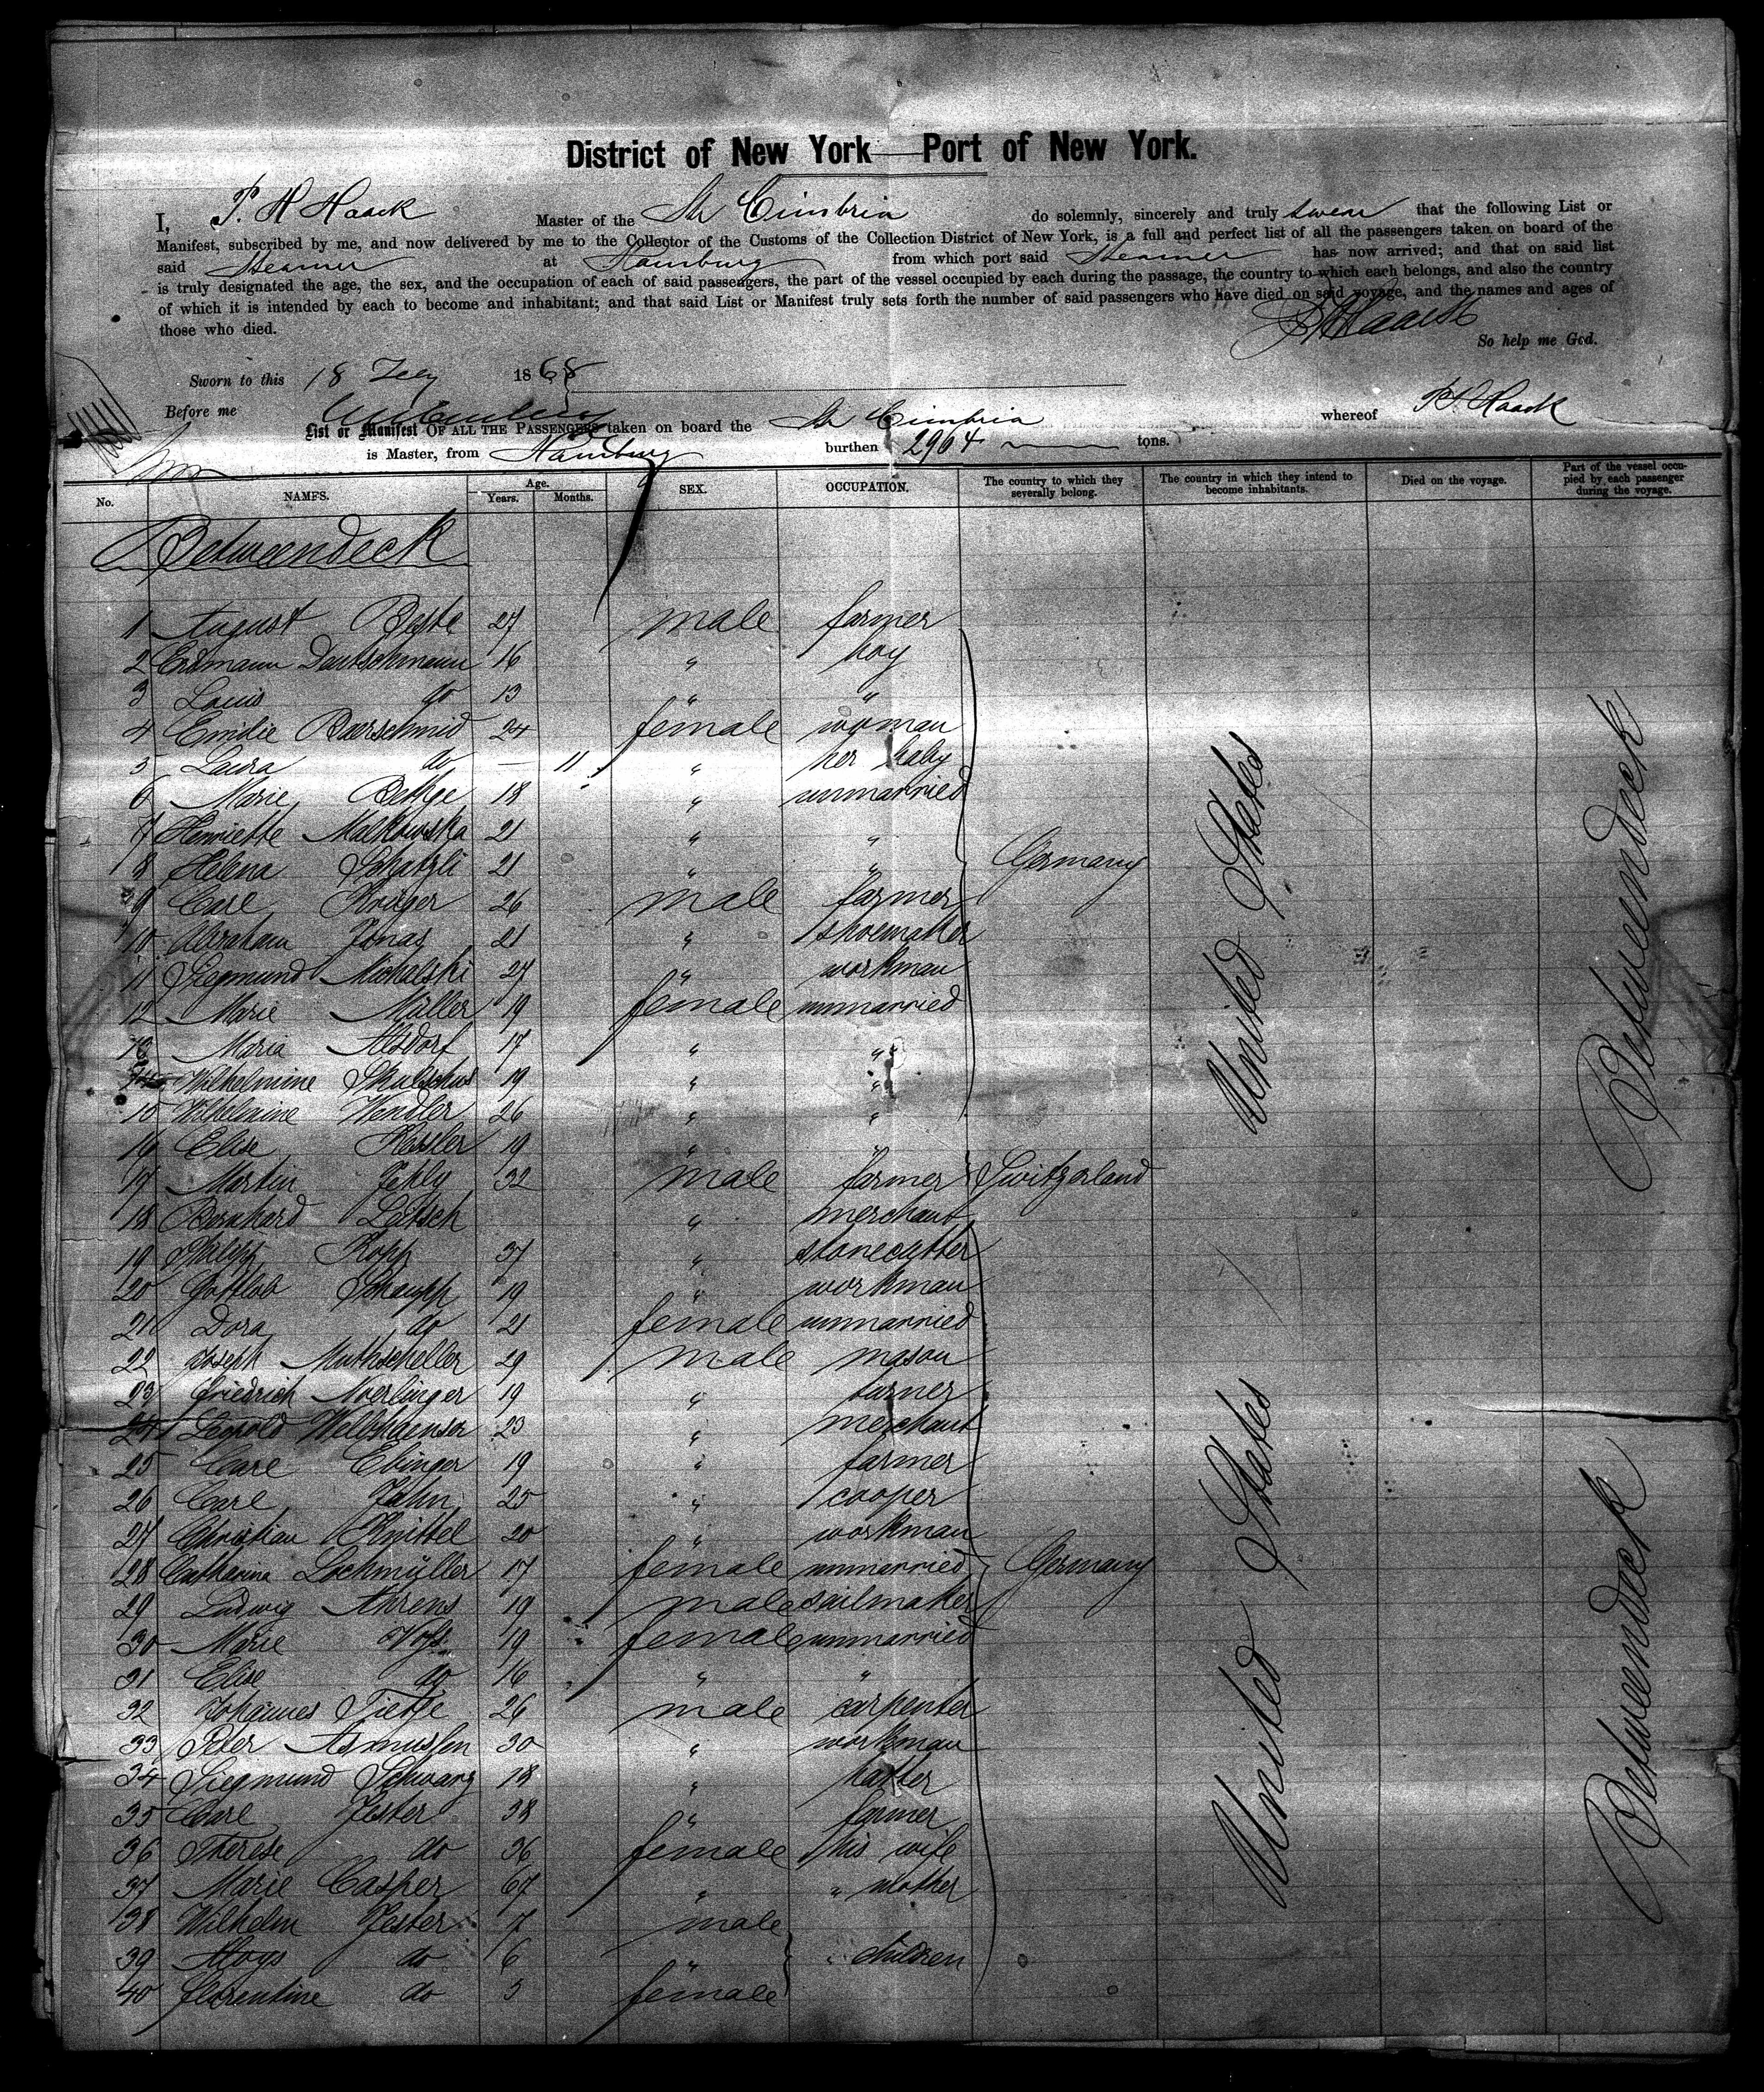 District of New York — Port of New York.
I, P. H Haack Master of the Str Cimbria do solemnly, sincerely and truly swear that the following List or
Manifest, subscribed by me, and now delivered by me to the Collector of the Customs of the Collection District of New York, is a full and perfect list of all the passengers taken on board of the
said Steamer at Hamburg from which port said Steamer has now arrived; and that on said list
is truly designated the age, the sex, and the occupation of each of said passengers, the part of the vessel occupied by each during the passage, the country to which each belongs, and also the country
of which it is intended by each to become and inhabitant; and that said List or Manifest truly sets forth the number of said passengers who have died on said voyage, and the names and ages of
those who died.
PHHaack
So help me God.
Sworn to this 18 1868
Before me
List or Manifest OF ALL THE PASSENGERS taken on board the Str Cimbria whereof P H Haack
is Master, from Hamburg burthen 2964 tons.
No. NAMES. Age. Years. Months. SEX. OCCUPATION. The country to which they severally belong. The country in which they intend to become inhabitants. Died on the voyage. Part of the vessel occupied by each passenger during the voyage.
Betweendeck
1 August Beste 27 male farmer
2 Erdmann Dautschmann 16 " boy
3 Louis do 13 " "
4 Emilie Baerschmid 24 female woman
5 Laura do — 11 " her baby
6 Marie Bethge 18 " unmarried
7 Henriette Malkowska 21 " "
8 Helena Schatzli 21 " " Germany
9 Carl Krüger 26 male farmer
10 Abraham Jonas 21 " shoemaker
11 Siegmund Michalski 27 " workman
12 Marie Müller 19 female unmarried
13 Maria Alsdorf 17 " "
14 Wilhelmine 19 " "
15 Wilhelmine Wendler 26 " "
16 Elise Kessler 19 " "
17 Martin Jehly 32 male farmer Switzerland
18 Bernhard Loitsch " merchant
19 Philipp Kopp 37 " stonecutter
20 Gottlob Schaupp 19 " workman
21 Dora do 21 female unmarried
22 Joseph Muthscheller 29 male mason
23 Friedrich Noerlinger 19 " turner
24 Leopold 23 " merchant
25 Carl Ebinger 19 " farmer
26 Carl Jahn 25 " cooper
27 Christian Knittel 20 " workman
28 Catharina Lochmüller 17 female unmarried Germany
29 Ludwig Ahrens 19 male sailmaker
30 Marie Voss 19 female unmarried
31 Elise do 16 " "
32 Johannes Tietje 26 male carpenter
33 Peter Asmussen 30 " workman
34 Siegmund Schwarz 18 " hatter
35 Carl Jester 38 " farmer
36 Therese do 36 female his wife
37 Marie Casper 67 " " mother
38 Wilhelm Jester 7 male
39 Aloys do 6 " children
40 Florentine do 5 female
United States
United States
Betweendeck
Betweendeck